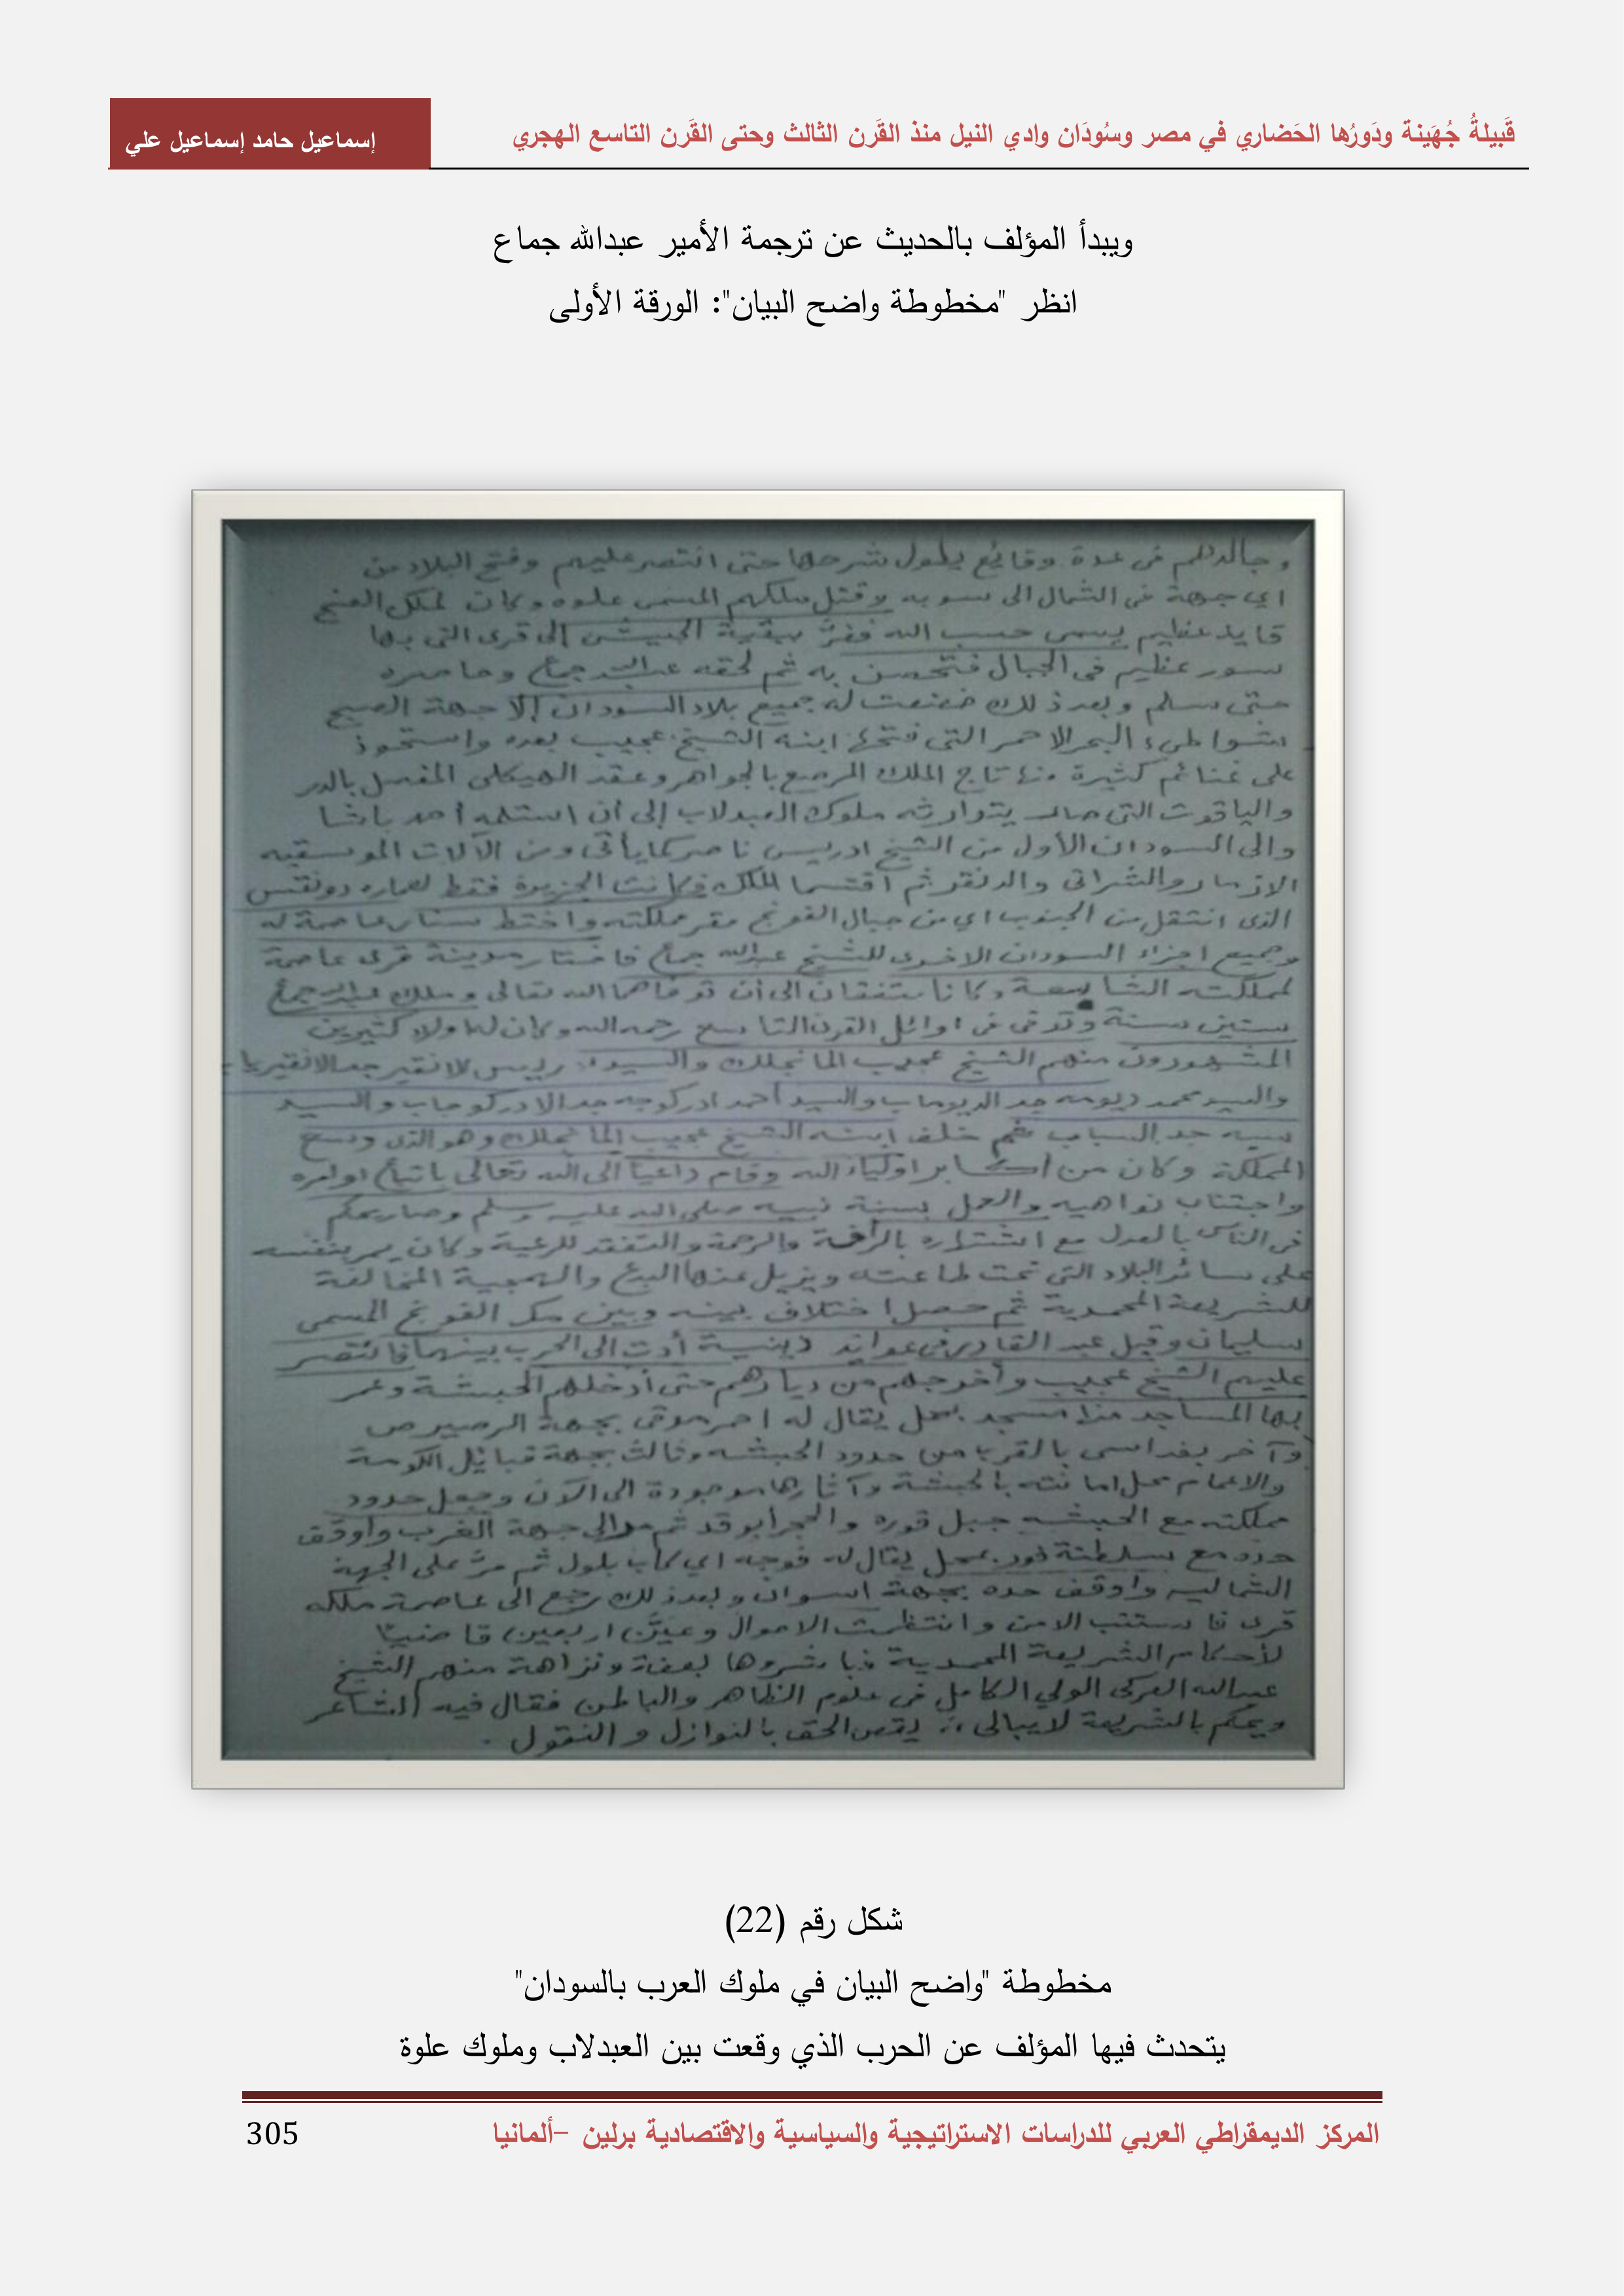 قَبيلةُ جُهَينة ودَورُها الحَضاري في مصر وسُودَان وادي النيل منذ القَرن الثالث وحتى القَرن التاسع الهجري
إسماعيل حامد إسماعيل علي
ويبدأ المؤلف بالحديث عن ترجمة الأمير عبدالله جماع
انظر "مخطوطة واضح البيان": الورقة الأولى
وجالدهم فى عدة وقائع يطول شرحها حتى انتصر عليهم وفتح البلاد من
اي جهة فى الشمال الى سوبه وقتل ملكهم المسمى علوه وكان لملك العنج
قايد عظيم يسمى حسب الله ففرَّ ببقية الجيش إلى قرى التى بها
سور عظيم فى الجبال فتحصن به ثم لحقه عبدالله جماع وحاصره
حتى سلم وبعد ذلك خضعت له جميع بلاد السودان إلا جهة
شواطىء البحر الاحمر التى فتحها ابنه الشيخ عجيب بعده واستحوذ
على غنائم كثيرة منها تاج الملك المرصع بالجواهر وعقد الهيكلى المفصل بالدر
والياقوت التى صار يتوارثه ملوك العبدلاب إلى أن استلمه أحمد باشا
والى السودان الأول من الشيخ ادريس ناصر كما يأتى ومن الآلات الموسقيه
والدنقر ثم اقتسما الملك فكانت الجزيرة فقط لعماره دونقس
الذى انتقل من الجنوب اي من جبال الفونج مقر مملكته واختط سنار عاصمة له
وجميع اجزاء السودان الاخرى للشيخ عبدالله جماع فاختار مدينة قرى عاصمة
لمملكته الشاسعة وكانا متفقان الى أن توفاهما الله تعالى وملك عبدالله جماع
ستين سنة وتوفى فى اوائل القرن التاسع رحمه الله وكان له اولاد كثيرين
المشهورون منهم الشيخ عجيب المانجلك والسيد
والسيد محمد ديومه جد الديوماب والسيد أحمد ادركوجه جد الادركوجاب والسيد
ثم خلف ابنه الشيخ عجيب المانجلك وهو الذى وسع
المملكة وكان من أكابر اولياء الله وقام داعيًا الى الله تعالى باتباع اوامره
واجتناب نواهيه والعمل بسنة نبيه صلى الله عليه وسلم وصار يحكم
فى الناس بالعدل مع اشتهاره بالرأفة والرحمة والتفقد للرعية وكان يمر بنفسه
على سائر البلاد التى تحت طاعته ويزيل عنها البدع والهمجية المخالفة
للشريعة المحمدية ثم حصل اختلاف بينه وبين مك الفونج المسمى
سليمان وقيل عبد القادر فى عوايد دينية أدت الى الحرب بينهما فانتصر
عليهم الشيخ عجيب وأخرجهم من ديارهم حتى أدخلهم الحبشة وعمر
بها المساجد منها مسجد بمحل يقال له بجهة الرصيرص
وآخر بالقرب من حدود الحبشه وثالث بجهة قبائل
بالحبشة وآثارها موجودة الى الآن وجعل حدود
مملكته مع الحبشه جبل قوره والحجر ابو قد ثم مر الى جهة الغرب وأوقف
حدد مع سلطنة فور بمحل يقال له فوجه ثم مرَّ على الجهة
الشماليه واوقف حده بجهة اسوان وبعد ذلك رجع الى عاصمة ملكه
قرى فاستتب الامن وانتظمت الاموال وعيَّن اربعين قاضيًا
لأحكام الشريعة المحمدية فباشروها بعفة ونزاهة منهم الشيخ
عبدالله العركى الولي الكامل فى علوم الظاهر والباطن فقال فيه الشاعر
ويحكم بالشريعة لا يبالى :: يقص الحق بالنوازل و النقول .
شكل رقم (22)
مخطوطة "واضح البيان في ملوك العرب بالسودان"
يتحدث فيها المؤلف عن الحرب الذي وقعت بين العبدلاب وملوك علوة
المركز الديمقراطي العربي للدراسات الاستراتيجية والسياسية والاقتصادية برلين –ألمانيا
305